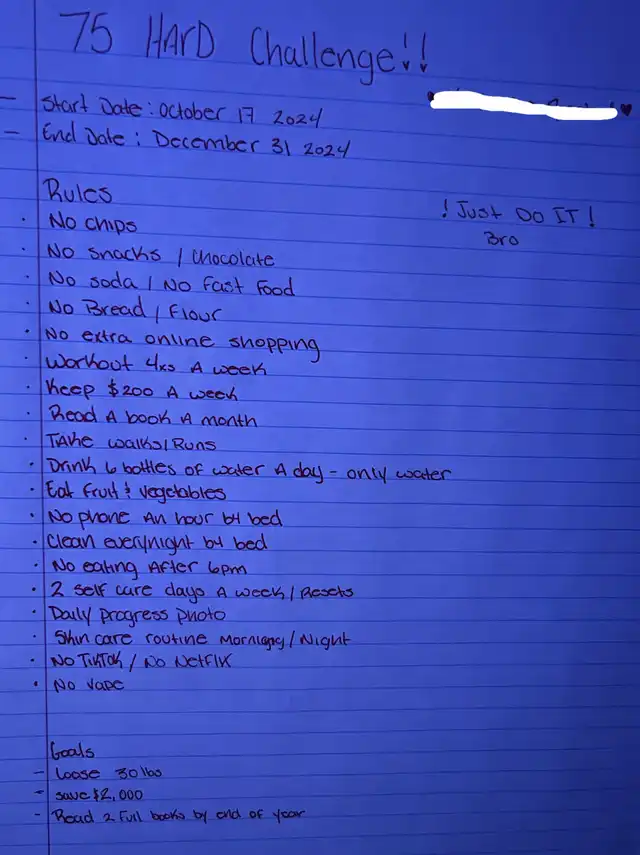 75 HARD Challenge!!
- Start Date: October 17 2024
- End Date: December 31 2024
Rules
! Just DO IT !
Bro
· No chips
· No snacks / Chocolate
· No soda / No Fast Food
· No Bread / Flour
· No extra online shopping
· Workout 4xs A week
· Keep $200 A week
· Read A book A month
· TAke walks/Runs
· Drink 6 bottles of water A day - only water
· Eat fruit & vegetables
· No phone An hour b4 bed
· Clean everynight b4 bed
· No eating After 6pm
· 2 self care days A week / Resets
· Daily progress photo
· Skin care routine Morning / Night
· No TikTok / No Netflix
· No Vape
Goals
- Loose 30 lbs
- save $2,000
- Read 2 Full books by end of year